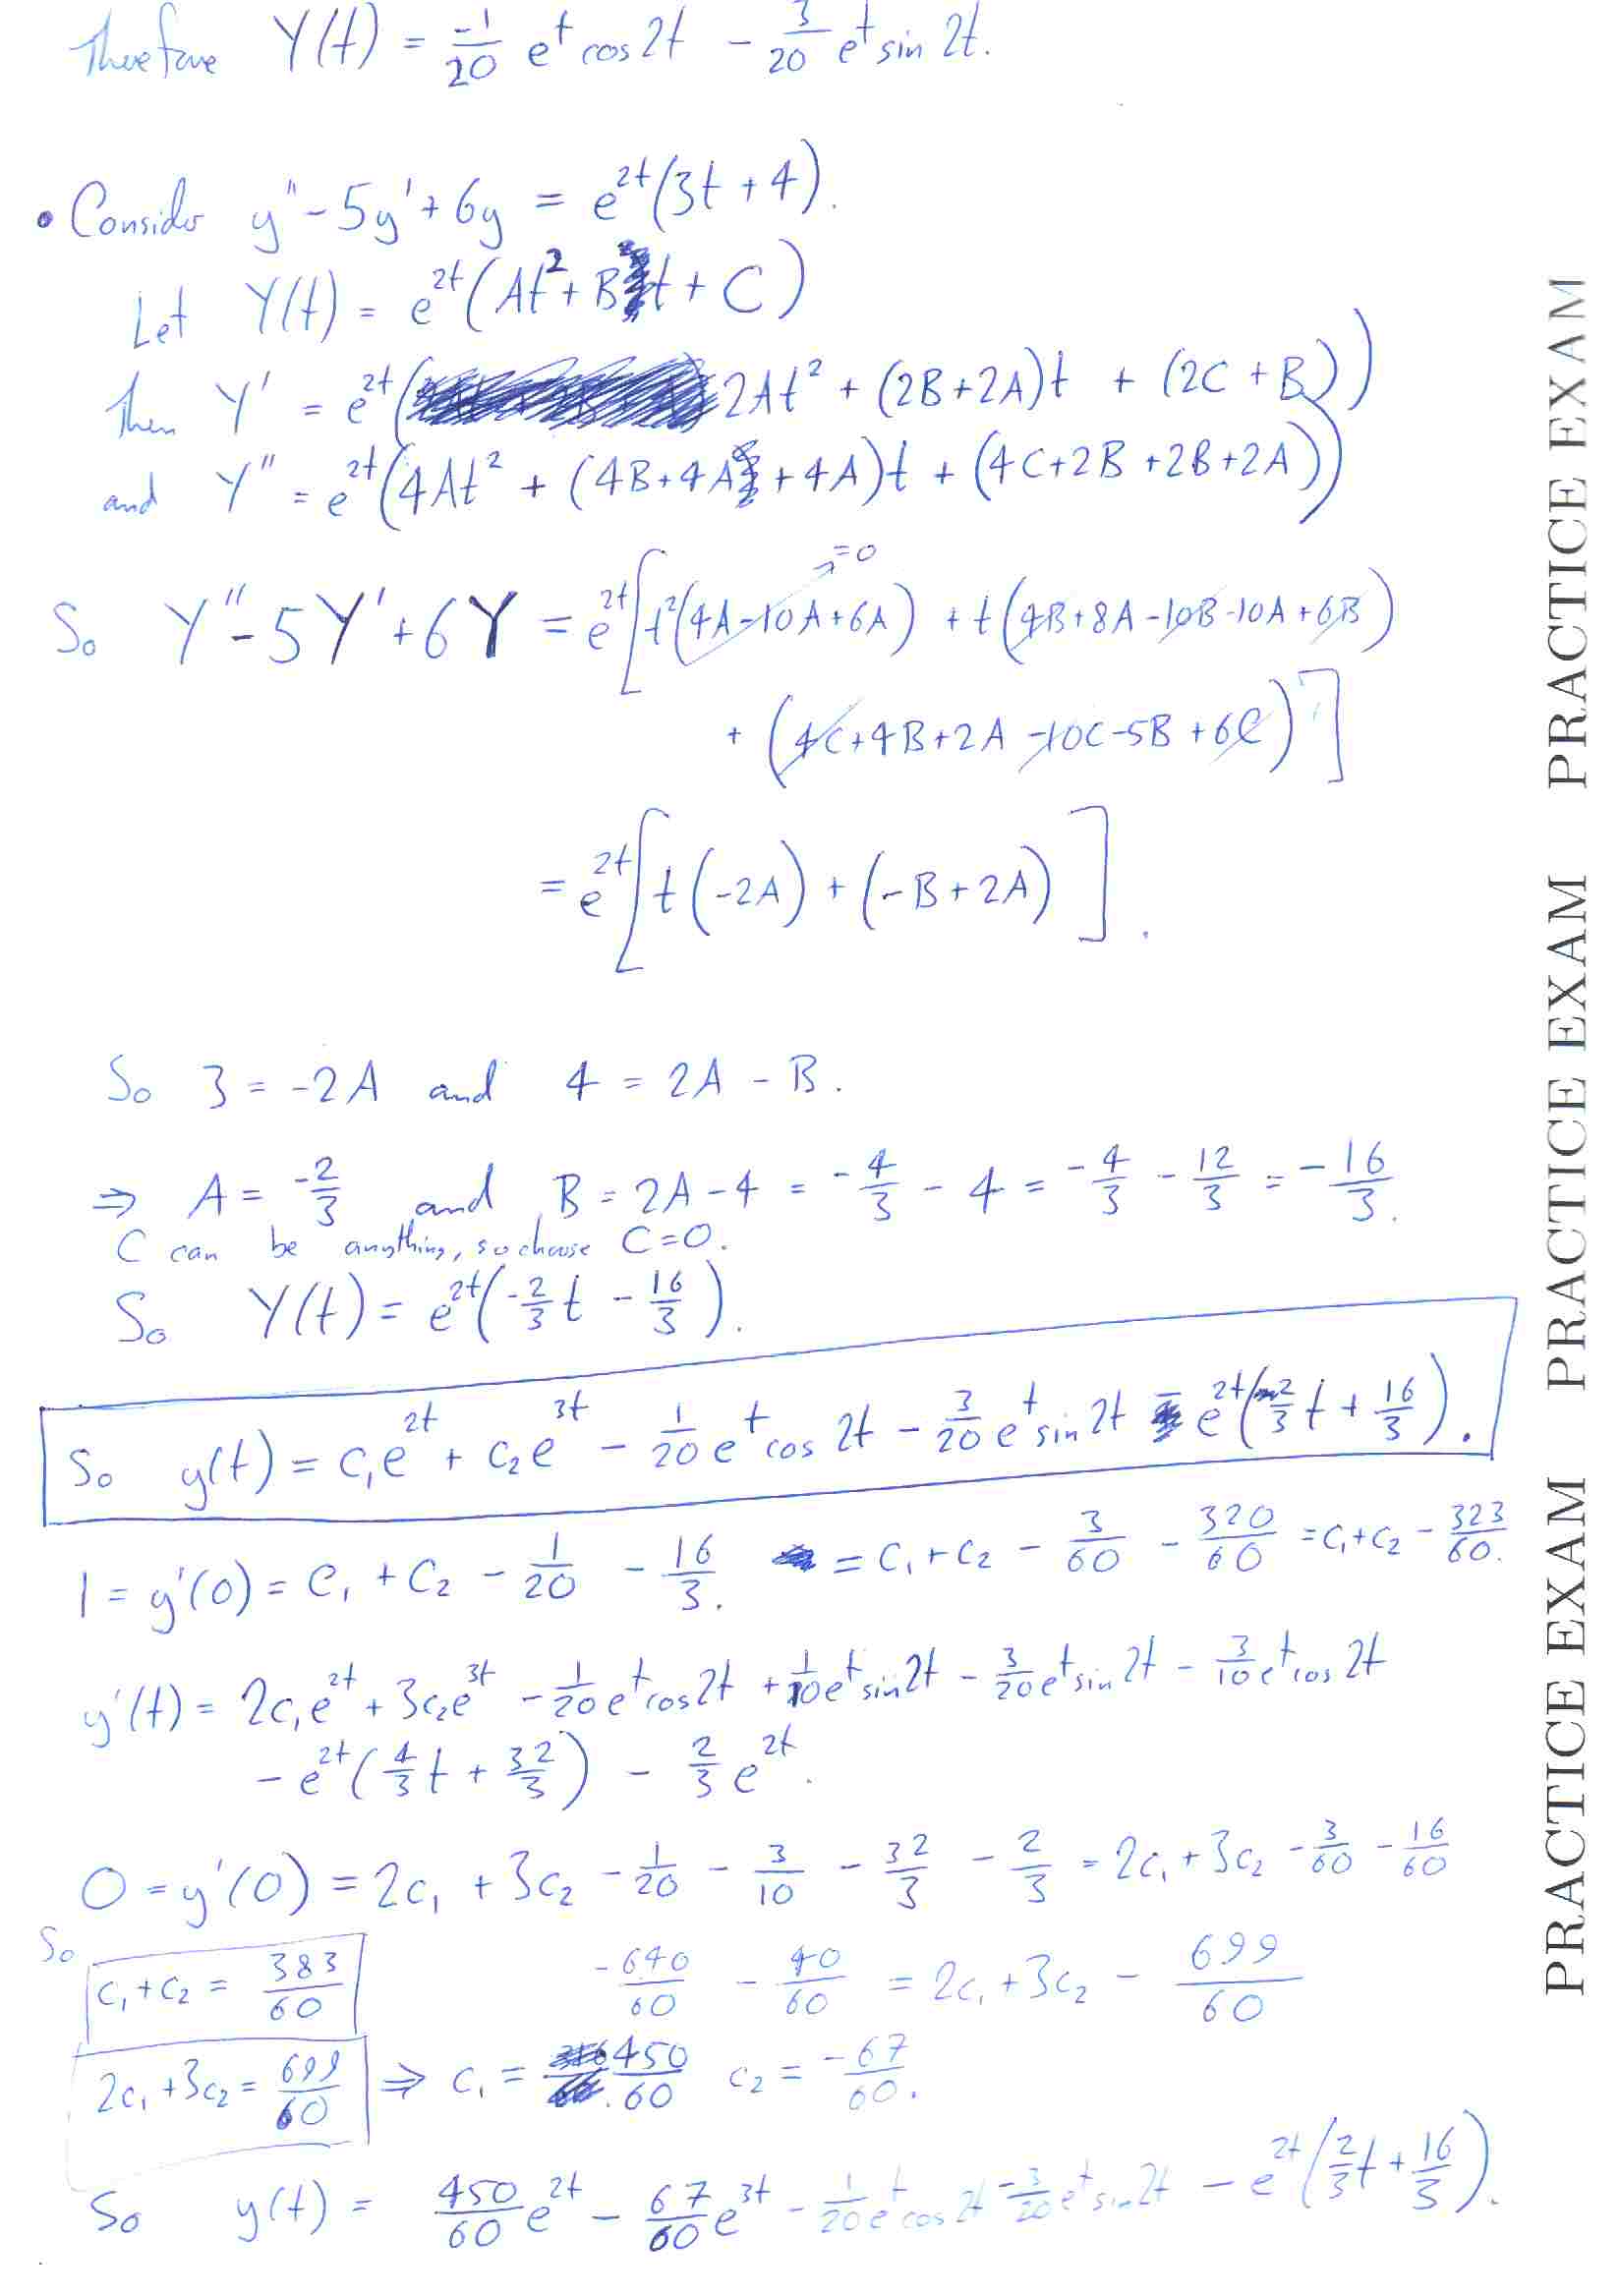 Therefore Y(t) = -1/20 e^t cos 2t - 3/20 e^t sin 2t.
• Consider y'' - 5y' + 6y = e^{2t}(3t + 4).
Let Y(t) = e^{2t}(At^2 + Bt + C)
then Y' = e^{2t}(2At^2 + (2B+2A)t + (2C+B))
and Y'' = e^{2t}(4At^2 + (4B+4A+4A)t + (4C+2B+2B+2A))
=0
So Y'' - 5Y' + 6Y = e^{2t}[t^2(4A-10A+6A) + t(4B+8A-10B-10A+6B)
+ (4C+4B+2A-10C-5B+6C)]
= e^{2t}[t(-2A) + (-B+2A)].
So 3 = -2A and 4 = 2A - B.
⇒ A = -2/3 and B = 2A - 4 = -4/3 - 4 = -4/3 - 12/3 = -16/3.
C can be anything, so choose C=0.
So Y(t) = e^{2t}(-2/3 t - 16/3).
So y(t) = c₁e^{2t} + c₂e^{3t} - 1/20 e^t cos 2t - 3/20 e^t sin 2t - e^{2t}(2/3 t + 16/3).
1 = y'(0) = c₁ + c₂ - 1/20 - 16/3. = c₁ + c₂ - 3/60 - 320/60 = c₁+c₂ - 323/60.
y'(t) = 2c₁e^{2t} + 3c₂e^{3t} - 1/20 e^t cos 2t + 1/10 e^t sin 2t - 3/20 e^t sin 2t - 3/10 e^t cos 2t
- e^{2t}(4/3 t + 32/3) - 2/3 e^{2t}.
0 = y'(0) = 2c₁ + 3c₂ - 1/20 - 3/10 - 32/3 - 2/3 = 2c₁ + 3c₂ - 3/60 - 16/60
-640/60 - 40/60 = 2c₁ + 3c₂ - 699/60
So c₁+c₂ = 383/60
2c₁+3c₂ = 699/60 ⇒ c₁ = 450/60 c₂ = -67/60.
So y(t) = 450/60 e^{2t} - 67/60 e^{3t} - 1/20 e^t cos 2t - 3/20 e^t sin 2t - e^{2t}(2/3 t + 16/3).
PRACTICE EXAM PRACTICE EXAM PRACTICE EXAM PRACTICE EXAM